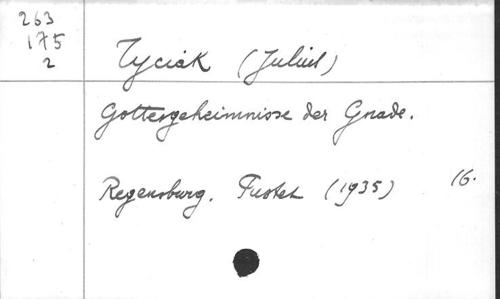 263
175
2
Tyciak (Julius)
Gottesgeheimnisse der Gnade.
Regensburg. Pustet (1935) 16.